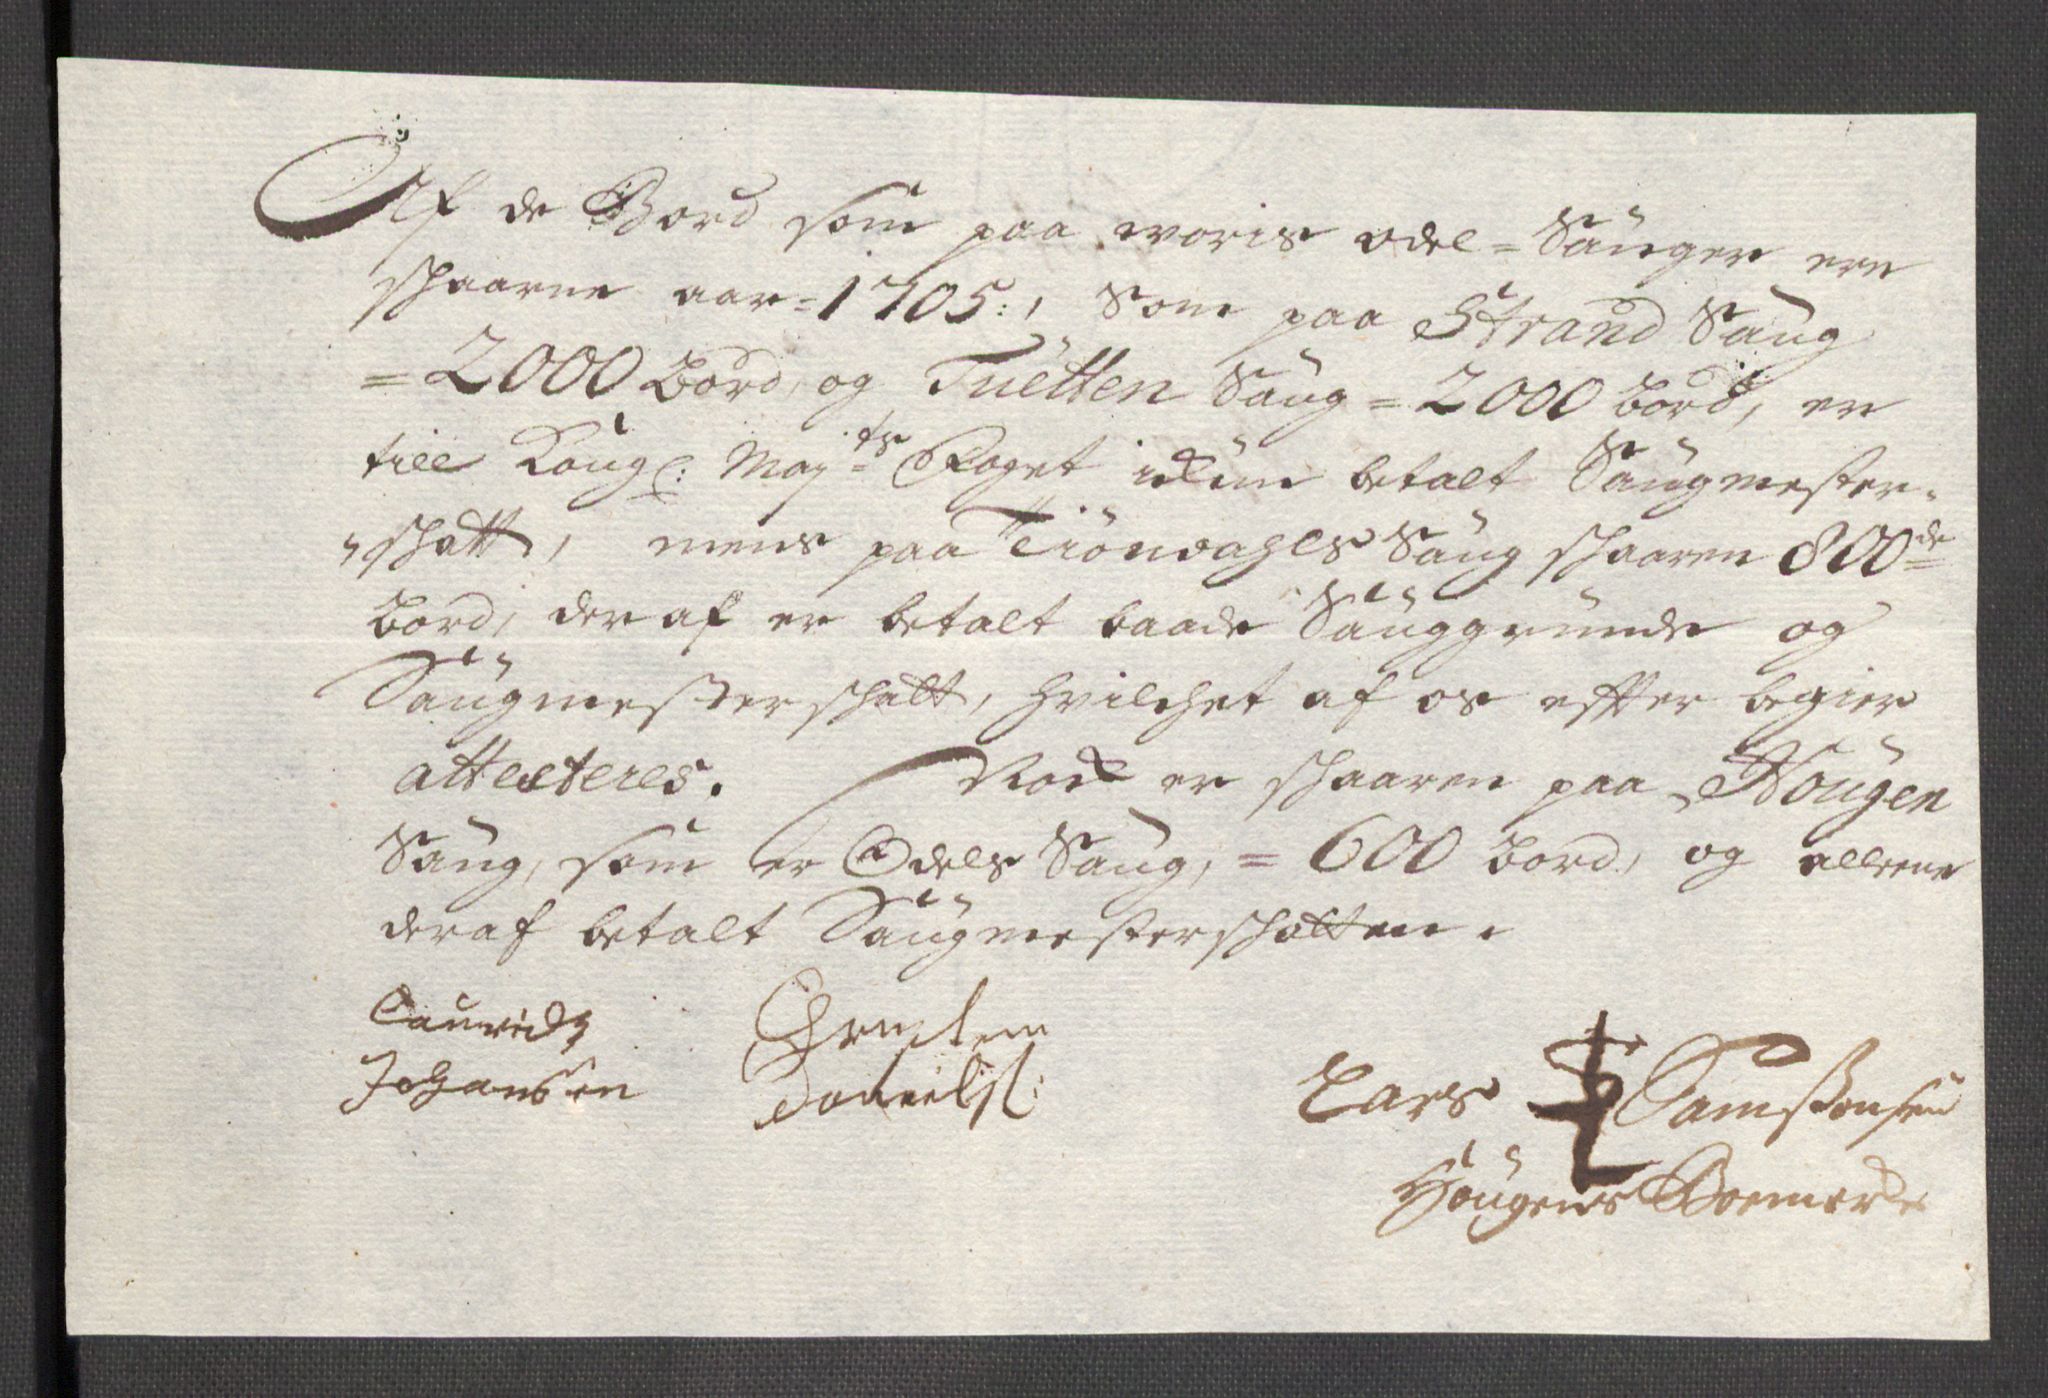 Af de Bord som paa woris odel = Sauger ere
schaarne aar = 1705:, Som paa Strand Saug
= 2000 bord, og Tuetten Saug = 2000 bord, er
till Kongl: Maj:ts Foget ickun betalt Saugmester-
schatt, mens paa Tiöndahls Saug schaaren 800de
bord, der af er betalt baade Sauggrunde og
Saugmesterschatt, hvilchet af os effter begier
attesteres. Nock er schaaren paa Hougen
Saug, som er Odels Saug, = 600 bord, og alleene
deraf betalt Saugmesterschatten.
Lauridtz Johansen
Christen Danielsl:
Lars Samssonsen
Hougens Boemercke